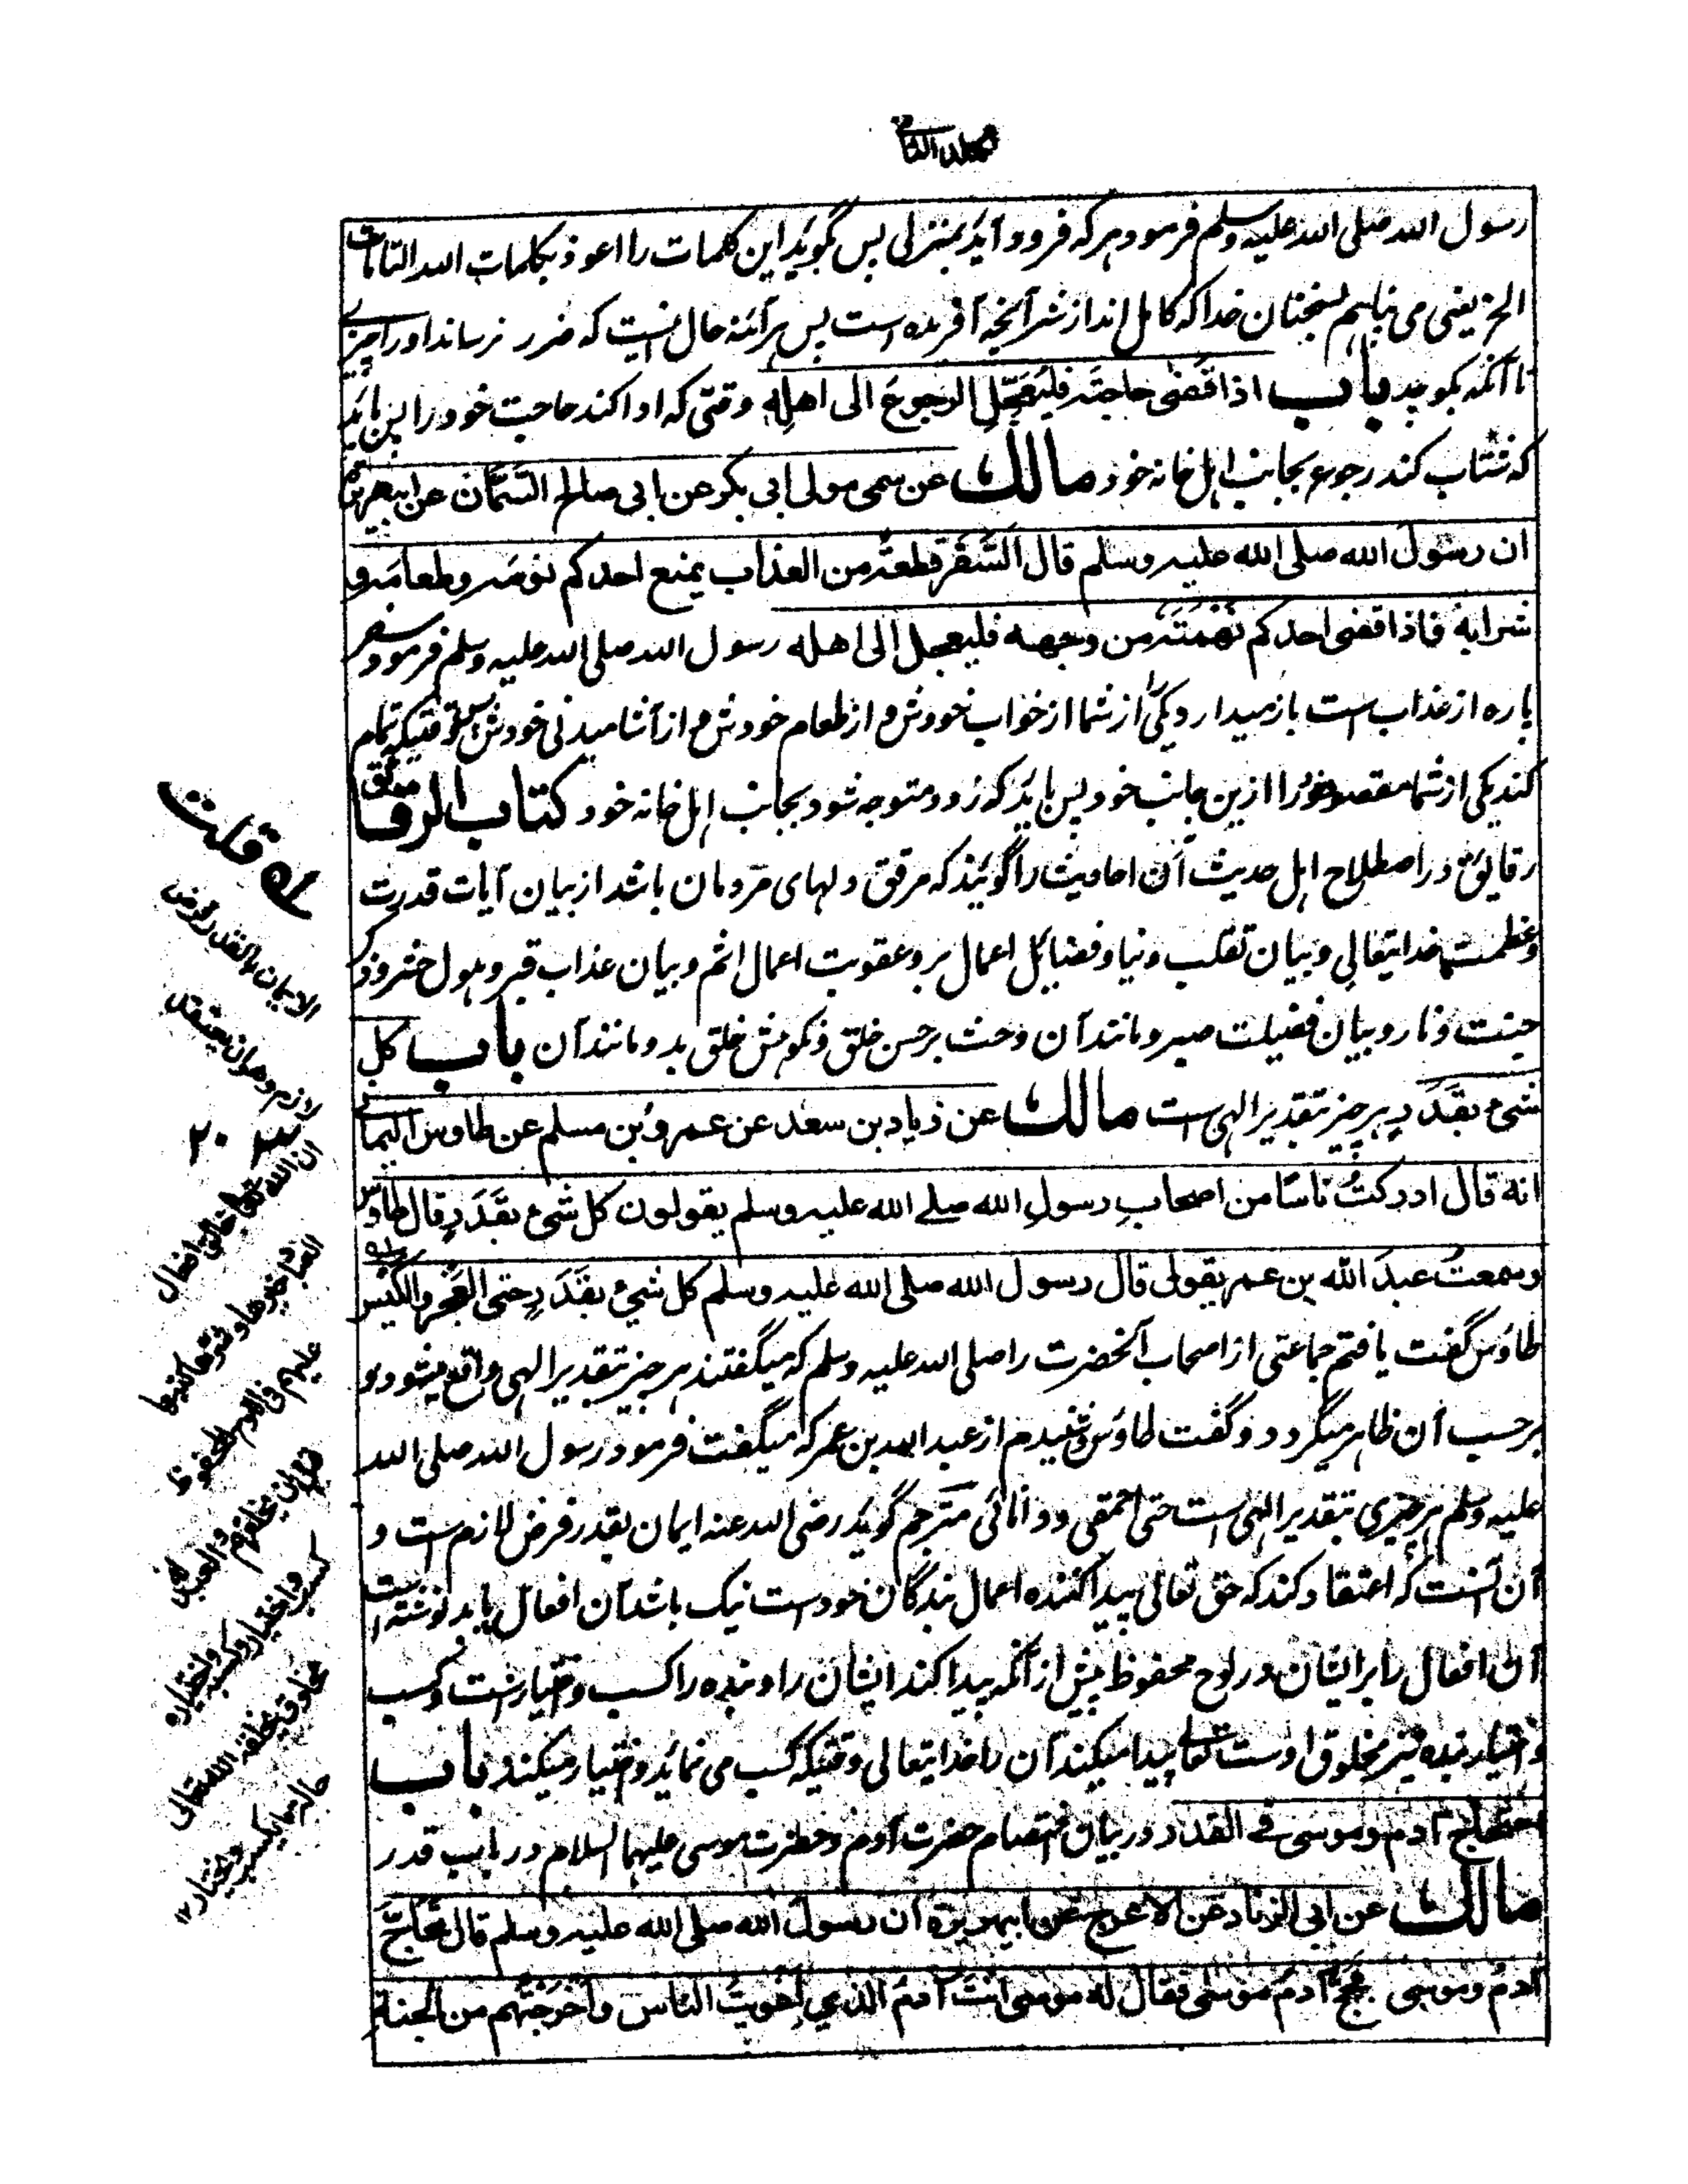 المجلد الثانی
رسول الله صلی الله علیه وسلم فرمود هر که فرود آید بمنزلی پس بگوید این کلمات را اعوذ بکلمات الله التامات
الخ یعنی می پناهم بسخنان خدا که کامل اند از شر آنچه آفریده است پس هر آئنه حال اینست که ضرر نرساند او را چیزے
تا آنکه بکوچد باب اذا قضى حاجته فليُعَجِّلِ الرجوعَ الى اهلِهٖ وقتی که ادا کند حاجت خود را پس باید
که شتاب کند رجوع بجانب اهل خانه خود مالك عن سمی مولی ابی بکر عن ابی صالح السَّمَّان عن ابیهریرة
ان رسولَ الله صلی الله علیه وسلم قال السَّفَر قطعةٌ من العذاب یمنع احدکم نومَه وطعامَه و
شرابَهٗ فاذا قضی احدکم نَهْمَتَهٗ من وجهه فلیعجل الی اهله رسول الله صلی الله علیه وسلم فرمود سفر
پاره از عذاب است باز میدارد یکی را از شما از خواب خودش و از طعام خودش و از آشامیدنی خودش پس وقتیکه تمام
کند یکی از شما مقصود خود را ازین جانب خود پس باید که زود متوجه شود بجانب اهل خانه خود کتاب الرقائق
رقایق در اصطلاح اهل حدیث آن احادیث را گویند که مرقق دلهای مردمان باشد از بیان آیات قدرت
وعظمت خدایتعالی و بیان تقلب دنیا و فضایل اعمال بر و عقوبت اعمال اثم و بیان عذاب قبر و هول حشر و ذکر
جنت و نار و بیان فضیلت صبر و مانند آن و حث بر حسن خلق و نکوهش خلق بد و مانند آن باب کل
شیء بقَدَرٍ هر چیز بتقدیر الهی است مالك عن زیاد بن سعد عن عمرو بن مسلم عن طاوس الیمانی
انه قال ادرکتُ ناسًا من اصحابِ رسولِ الله صلے الله علیه وسلم یقولون کل شیء بقَدَرٍ قال طاوس
وسمعتُ عبدَ الله بن عمر یقول قال رسول الله صلی الله علیه وسلم کل شیء بقَدَرٍ حتی العَجْز والکَیْس
طاوس گفت یافتم جماعتی از اصحاب آنحضرت را صلی الله علیه وسلم که میگفتند هر چیز بتقدیر الهی واقع میشود و
برحسب آن ظاهر میگردد و گفت طاوس و شنیدم از عبد الله بن عمر که میگفت فرمود رسول الله صلی الله
علیه وسلم هر چیزی بتقدیر الهی است حتی احمقی و دانائی مترجم گوید رضی الله عنه ایمان بقدر فرض لازم است و
آن آنست که اعتقاد کند که حق تعالی پیدا کننده اعمال بندگان خود است نیک باشد آن افعال یا بد نوشته است
آن افعال را برایشان در لوح محفوظ پیش از آنکه پیدا کند ایشان را و بنده را کسب و اختیارست و کسب
و اختیار بنده نیز مخلوق اوست تعالی پیدا میکند آن را خدایتعالی وقتیکه کسب می نماید و اختیار میکند باب
احتجاج آدم وموسی فے القدر در بیان اختصام حضرت آدم و حضرت موسی علیهما السلام در باب قدر
مالك عن ابی الزناد عن الاعرج عن ابیهریرة ان رسول الله صلی الله علیه وسلم قال تحاجَّ
آدمُ وموسی فحجَّ آدمُ موسٰی فقال له موسی انتَ آدمُ الذی اَغْوَیتَ الناس واخرجتَهم من الجنة
قلت
الایمان بالقدر فرض
لازم وهو ان یعتقد
ان الله تعالی خالق افعال
العباد خیرها وشرها کتبها
علیهم فی اللوح المحفوظ
قبل ان یخلقهم وللعباد
کسب واختیار وکسبه واختیاره
مخلوق یخلقه الله تعالی
حالة ما یکسب ویختار ۱۲